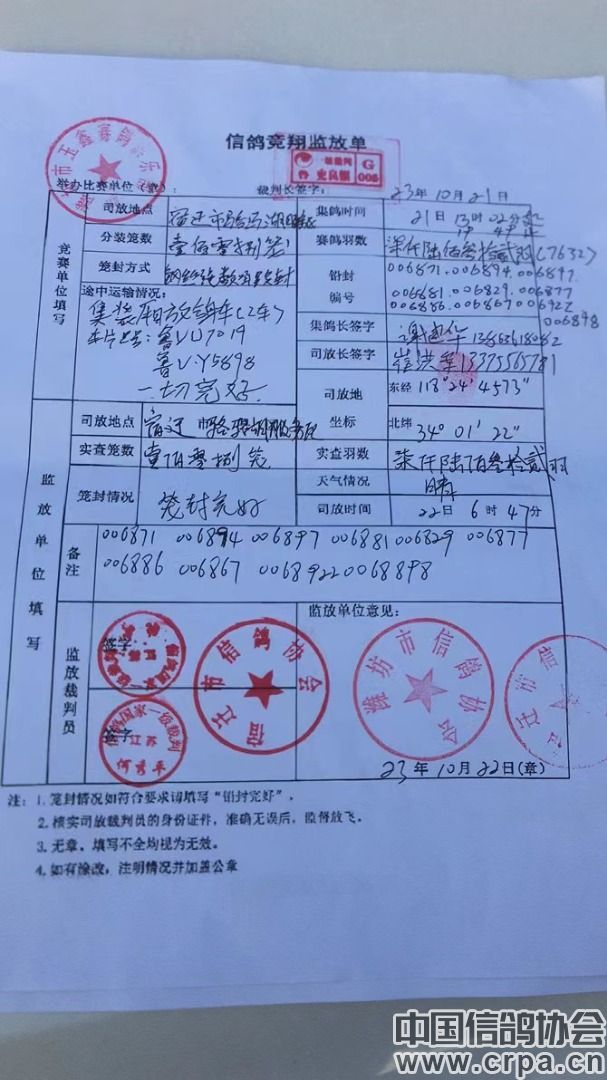 信鸽竞翔监放单
G
008
举办比赛单位(章):
裁判长签字:
23年10月21日
竞赛单位填写
司放地点
宿迁市骆马湖
集鸽时间
21日13时02分
分装笼数
壹佰零捌笼
赛鸽羽数
柒仟陆佰叁拾贰羽(7632)
笼封方式
铅封编号
006871.006894.006897.
006881.006829.006877
006886.006867006922
006898
途中运输情况:
集装箱放鸽车(2车)
车牌号:鲁VU7019
鲁V.Y5898
一切完好
集鸽长签字
司放长签字
司放地坐标
东经
118°24′4573″
北纬
34°01′22″
监放单位填写
司放地点
宿迁
实查笼数
壹佰零捌笼
实查羽数
柒仟陆佰叁拾贰羽
天气情况
晴
笼封情况
笼封完好
司放时间
22日6时47分
备注
006871 006894 006897 006881 006829 006877
006886 006867 0068922 0068898
监放裁判员
签字:
签字:
监放单位意见:
宿迁市信鸽协会
潍坊市信鸽协会
信鸽国家一级裁判
江苏
23年10月22日(章)
注:1.笼封情况如符合要求请填写“铅封完好”。
2.核实司放裁判员的身份证件,准确无误后,监督放飞。
3.无章、填写不全均视为无效。
4.如有涂改,注明情况并加盖公章
中国信鸽协会
www.crpa.cn